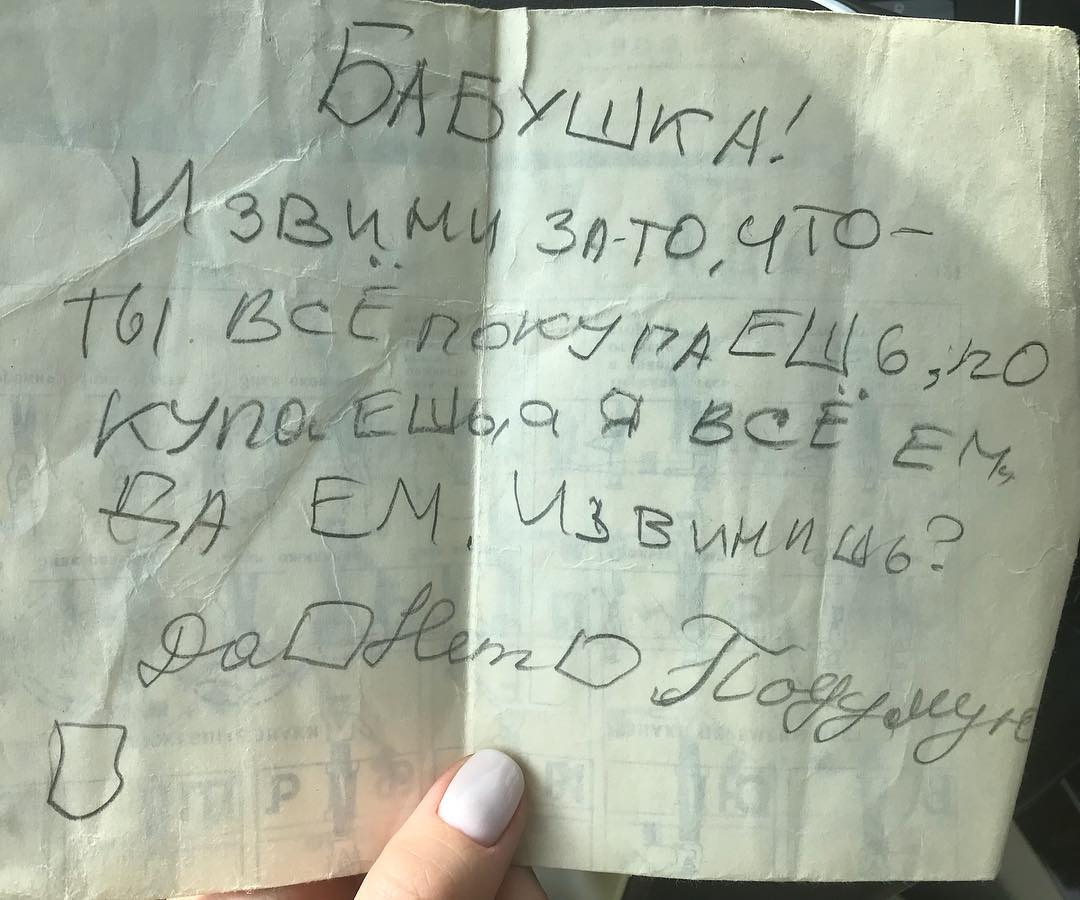 БАБУШКА!
ИЗВИНИ ЗА-ТО, ЧТО-
ТЫ ВСЁ ПОКУПАЕШЬ, ПО
КУПАЕШЬ, а Я ВСЁ ЕМ,
ДА ЕМ. ИЗВИНИШЬ?
Да Нет Подумую